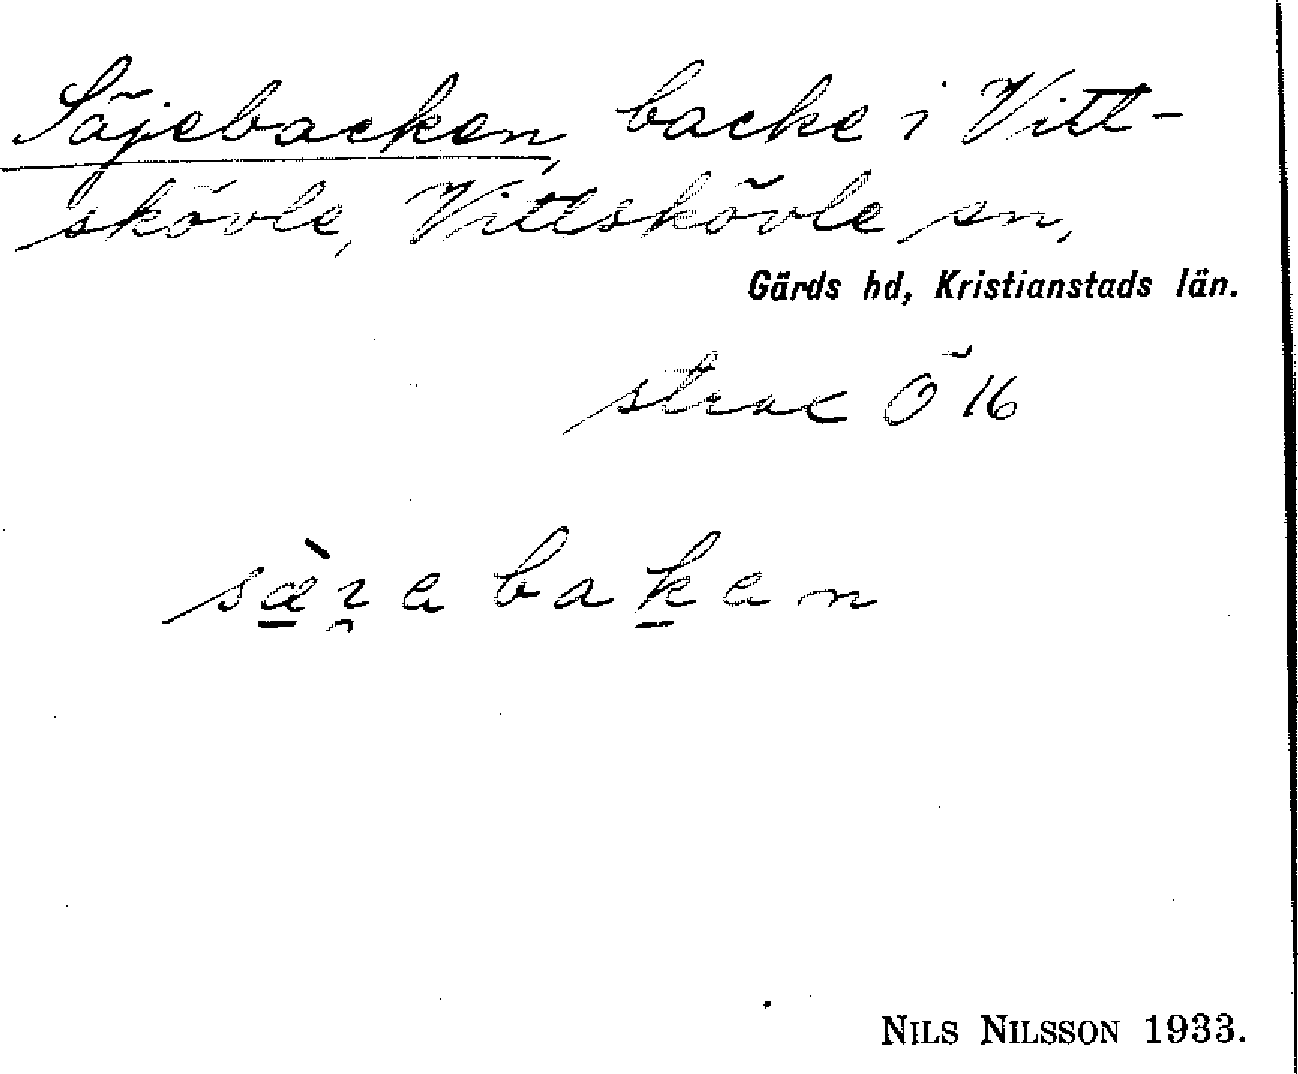 Säjebacken, backe i Vitt-
skövle, Vittskövle sn,
Gärds hd, Kristianstads län.
Ö 16
NILS NILSSON 1933.